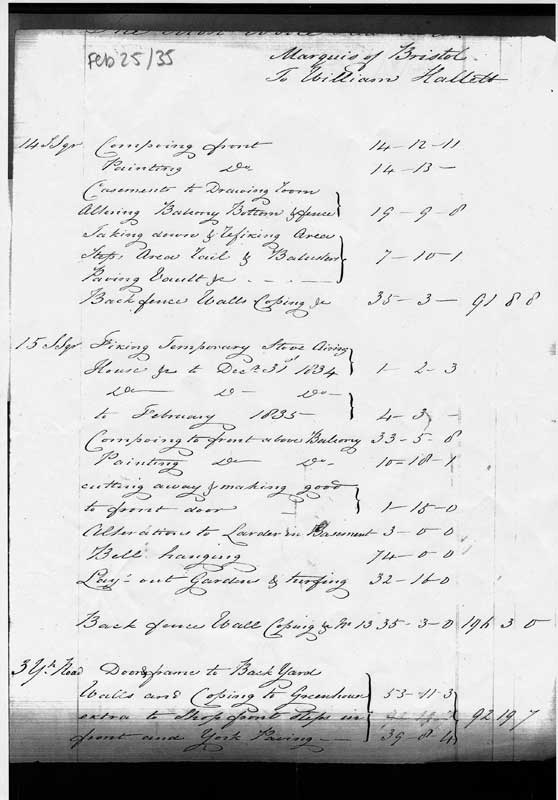 Feb 25/35
Marquis of Bristol
To William Hallett
14 S Sqr Compoing front 14-12-11
Painting Do 14-13-
Casements to Drawing room
Altering Balcony Bottom & fence 19-9-8
Taking down & refixing Area
Steps Area rail & Baluster 7-10-1
Paving Vault &c
Back fence Walls Coping &c 35-3- 91 8 8
15 S Sqr Fixing Temporary Stove Airing
House &c to Decr 31st 1834 1-2-3
Do D Do
to February 1835 4-3-
Compoing to front above Balcony 33-5-8
Painting Do Do 10-18-1
cutting away & making good
to front door 1-15-0
Alterations to Larder in Basement 3-0-0
Bell hanging 74-0-0
Lay- out Gardens & turfing 32-16-0
Back fence Wall Coping & 13 35-3-0 196 3 0
3 Yk Road Door & frame to Back Yard
Walls and Coping to Greenhouse 53-11-3
extra to Shop front steps in 92 19 7
front and York Paving 39-8-4